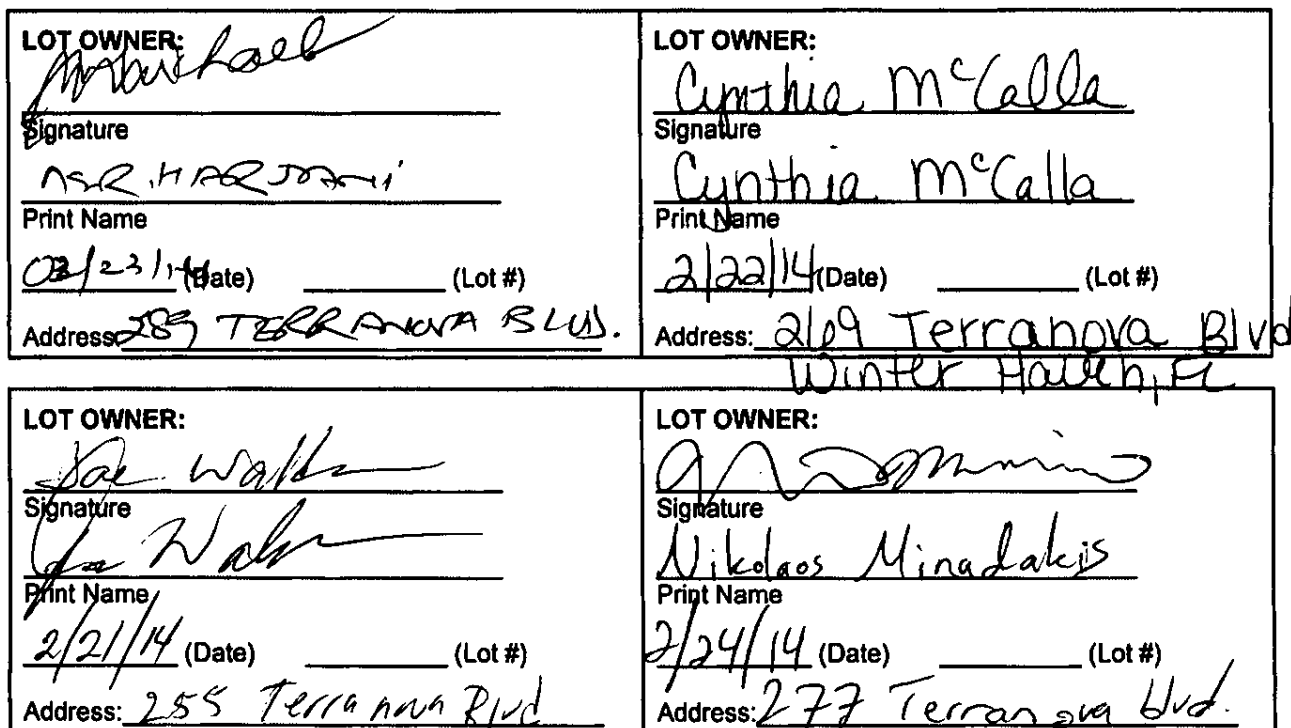 LOT OWNER:
Signature
Print Name
02/23/14 (Date) (Lot #)
Address: 289 TERRANOVA BLVD.
LOT OWNER:
Cynthia McCalla
Signature
Cynthia McCalla
Print Name
2/22/14 (Date) (Lot #)
Address: 269 Terranova Blvd
Winter Haven, FL
LOT OWNER:
Joe Walker
Signature
Print Name
2/21/14 (Date) (Lot #)
Address: 255 Terranova Blvd
LOT OWNER:
Signature
Nikolaos Minadakis
Print Name
2/24/14 (Date) (Lot #)
Address: 277 Terranova blvd.